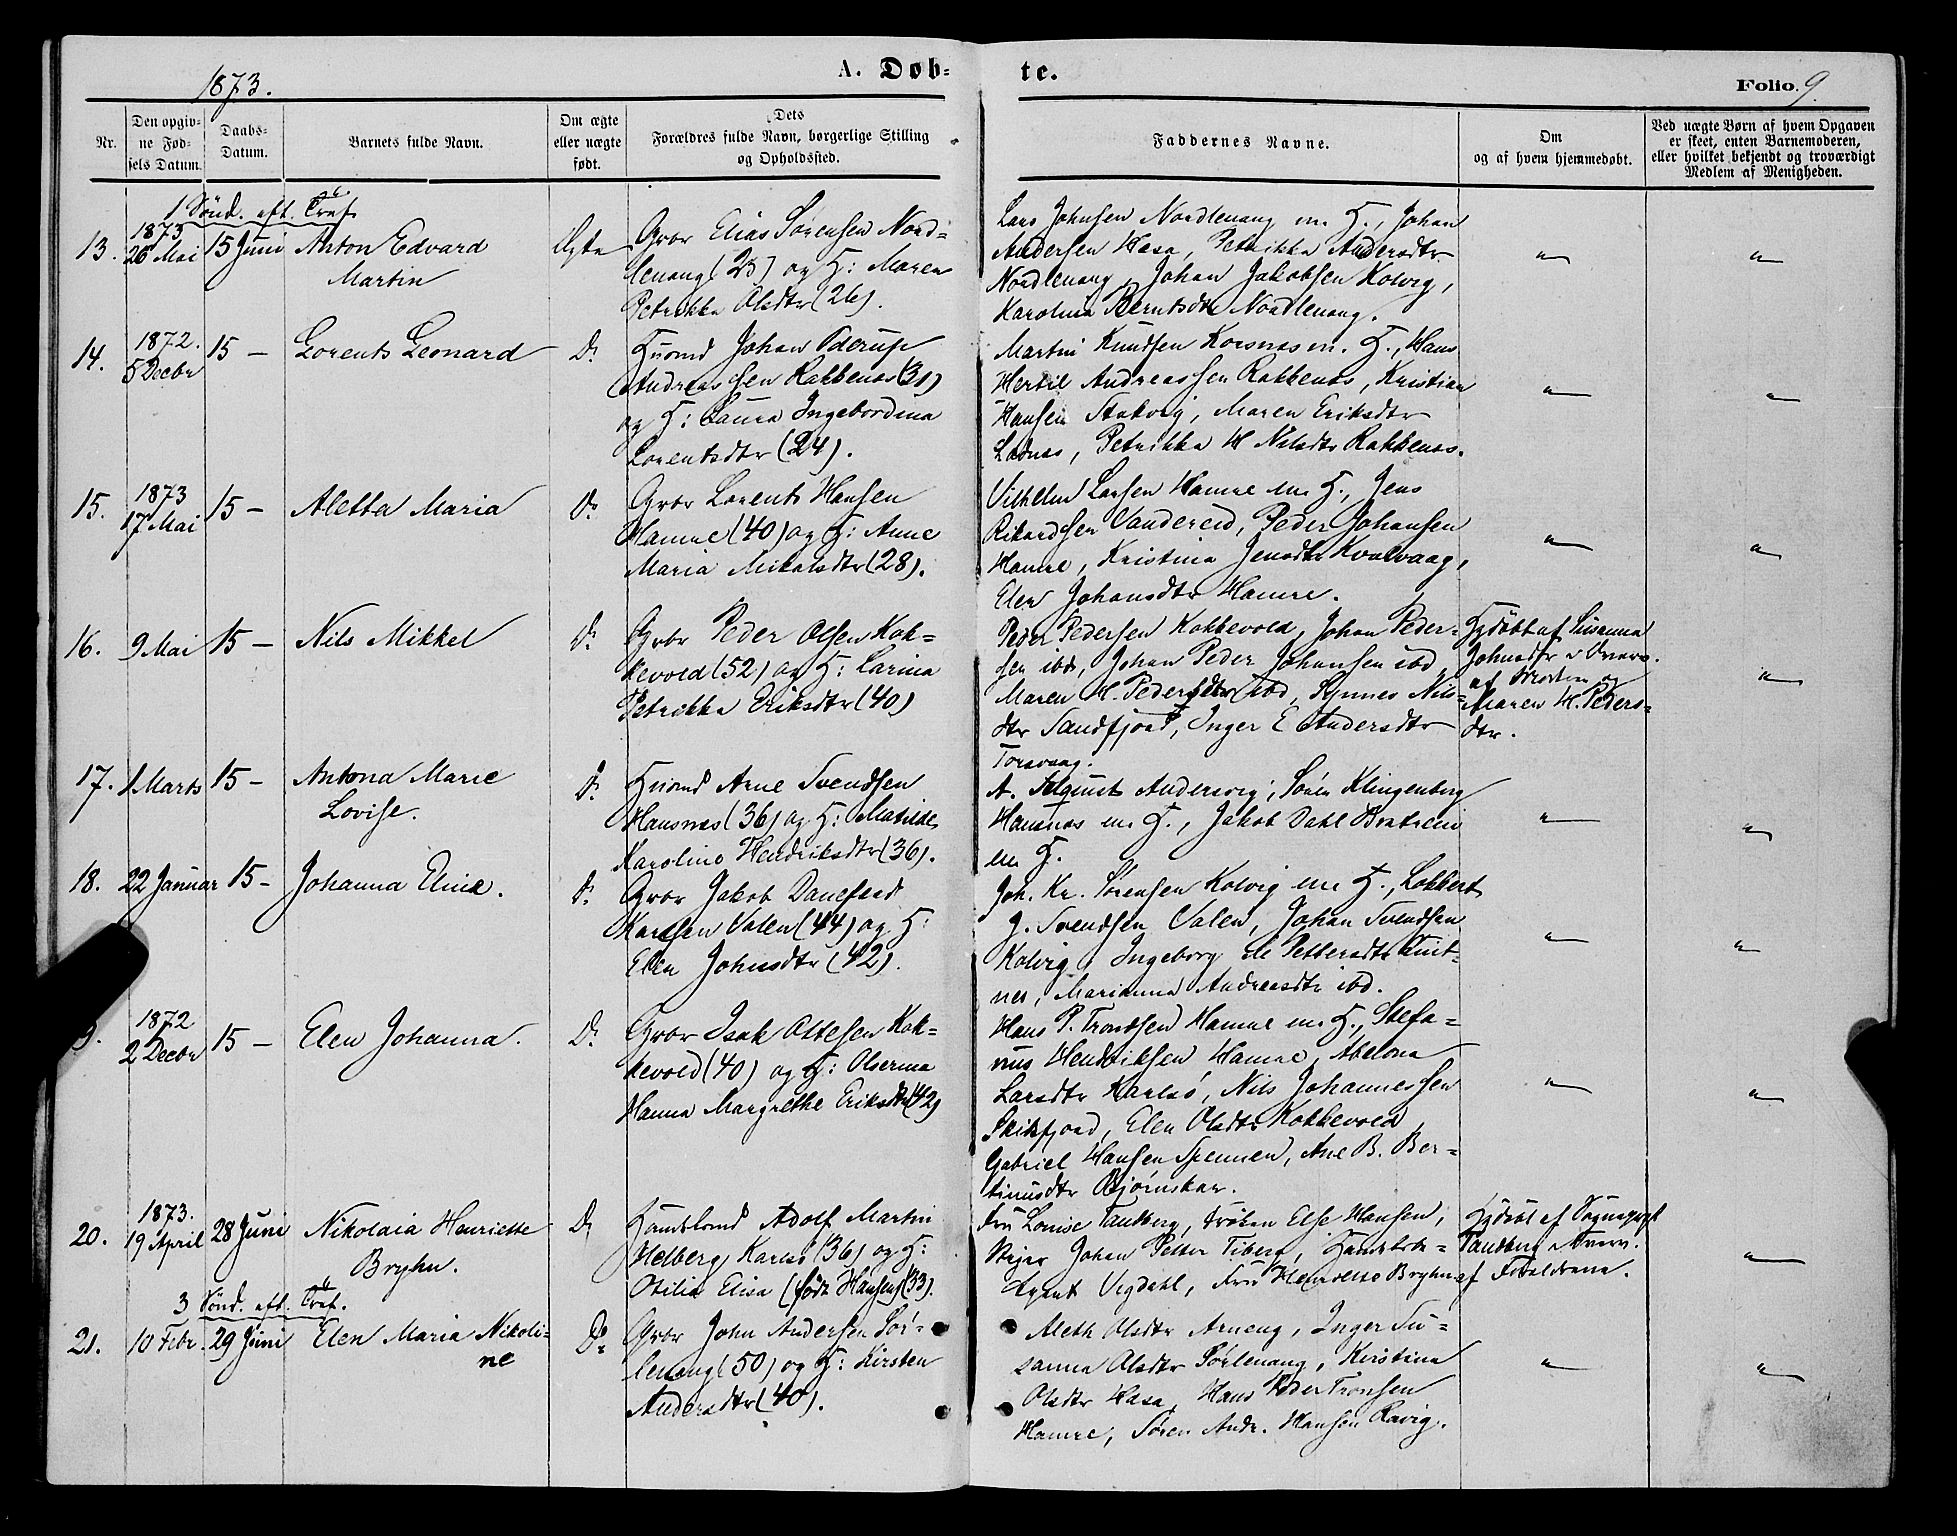 1873.
A. Døb-
te.
Folio 9.
Nr.
Den opgiv-
ne Fød-
sels Datum.
Daabs-
Datum.
Barnets fulde Navn.
Om ægte
eller uægte
født.
Dets
Forældres fulde Navn, borgerlige Stilling
og Opholdssted.
Faddernes Navne.
Om
og af hvem hjemmedøbt.
Ved uægte Børn af hvem Opgaven
er skeet, enten Barnemoderen,
eller hvilket bekjendt og troværdigt
Medlem af Menigheden.
1 Sönd. eft. Tref.
13.
1873
26 Mai
15 Juni
Anton Edvard
Martin
Ægte
Gbr Elias Sørensen Nord-
lenang (25) og H: Maren
Petrikka Olsdtr (26).
Lars Johnsen Nordlenang m. H., Johan
Andersen Hasa, Petrikka Andersdtr
Nordlenang, Johan Jakobsen Kolvig,
Karolina Berntsdtr Nordlenang.
"
"
14.
1872.
5 Decbr
15 —
Lorents Leonard
Do
Huusmd Johan Pderup
Andreassen Rakkenæs (31)
og H: Laura Ingebordina
Lorentsdtr (24).
Martin Knudsen Korsnæs m. H., Hans
Hertil Andreassen Rakkenæs, Kristian
Hansen Stakvig, Maren Eriksdtr
Ladnæs, Petrikka H Nilsdtr Rakkenæs.
"
"
15.
1873
17 Mai
15 —
Aletta Maria
Do
Gbr Lorents Hansen
Hamre (40) og H: Anne
Maria Mikalsdtr (28).
Vilhelm Larsen Hamre m H., Jens
Rikardsen Vandereid, Peder Johansen
Hamre, Kristina Jensdtr Kvalvaag,
Elen Johansdtr Hamre.
"
"
16.
9 Mai
15 —
Nils Mikkel
Do
Gbr Peder Olsen Kok-
kevold (52) og H: Larina
Petrikka Eriksdtr (40)
Peder Pedersen Kokkevold, Johan Peder-
sen ibd, Johan Peder Johansen ibd,
Maren H. Pedersdtr ibd, Synnes Nils-
dtr Sandfjord, Inger E Andersdtr
Torsvaag.
Hjdöbt af Susanna
Johnsdtr
af Moderen og
Maren H. Peders-
dtr.
"
17.
1 Marts
15 —
Antona Marie
Lovise.
Do
Huusmd Arne Svendsen
Hansnæs (36) og H: Matilde
Karoline Hendriksdtr (36).
A. August Andersvig, Sören Klingenberg
Hansnæs m H., Jakob Dahl Bratrein
m H.
"
"
18.
22 Januar
15 —
Johanna Eline.
Do
Gbr Jakob Danefeld
Karlsen Valen (44) og H:
Elen Johnsdtr (42).
Joh. Kr. Sørensen Kolvig m H., Lobbert
J. Svendsen Valen, Johan Svendsen
Kolvig, Ingeborg El Pettersdtr Tuit-
nes, Marianna Andreasdtr ibd.
"
"
1872
2 Decbr
15 —
Elen Johanna.
Do
Gbr Isak Ottesen Kok-
kevold (40) og H: Olserina
Hanna Margrethe Eriksdtr (42)
Hans P. Trondsen Hamre m H., Stefa-
nus Hendriksen Hamre, Abelona
Larsdtr Karlsö, Nils Johannessen
Skibsfjord, Elen Olsdtr Kokkevold
Gabriel Hansen Spennen, Ane B. Ber-
tinusdtr Bjørnskar.
"
"
20.
1873.
19 April
28 Juni
Nikolaia Henriette
Bryhn.
Do
Handelsmd Adolf Martin
Helberg Karlsö (36) og H:
Otilia Elisa (født Hansen) (33).
Fru Lovise Tandberg, Fröken Else Hansen,
Johan Petter Tiberg, Handelsbe-
tjent Vegdahl, Fru Henriette Bryhn
Hjdöbt af Sognepræst
Tandberg
af Forældrene.
"
3 Sönd. eft. Tref.
21.
10 Febr.
29 Juni
Elen Maria Nikoli-
ne
Do
Gbr John Andersen Sör-
lenang (50) og H: Kirsten
Andersdtr (40).
Meth Olsdtr Arneng, Inger Su-
sanna Olsdtr Sørlenang, Kirstina
Olsdtr Hasa, Hans Peder Tronsen
Hamre, Sören Andr. Hansen Ravig.
"
"